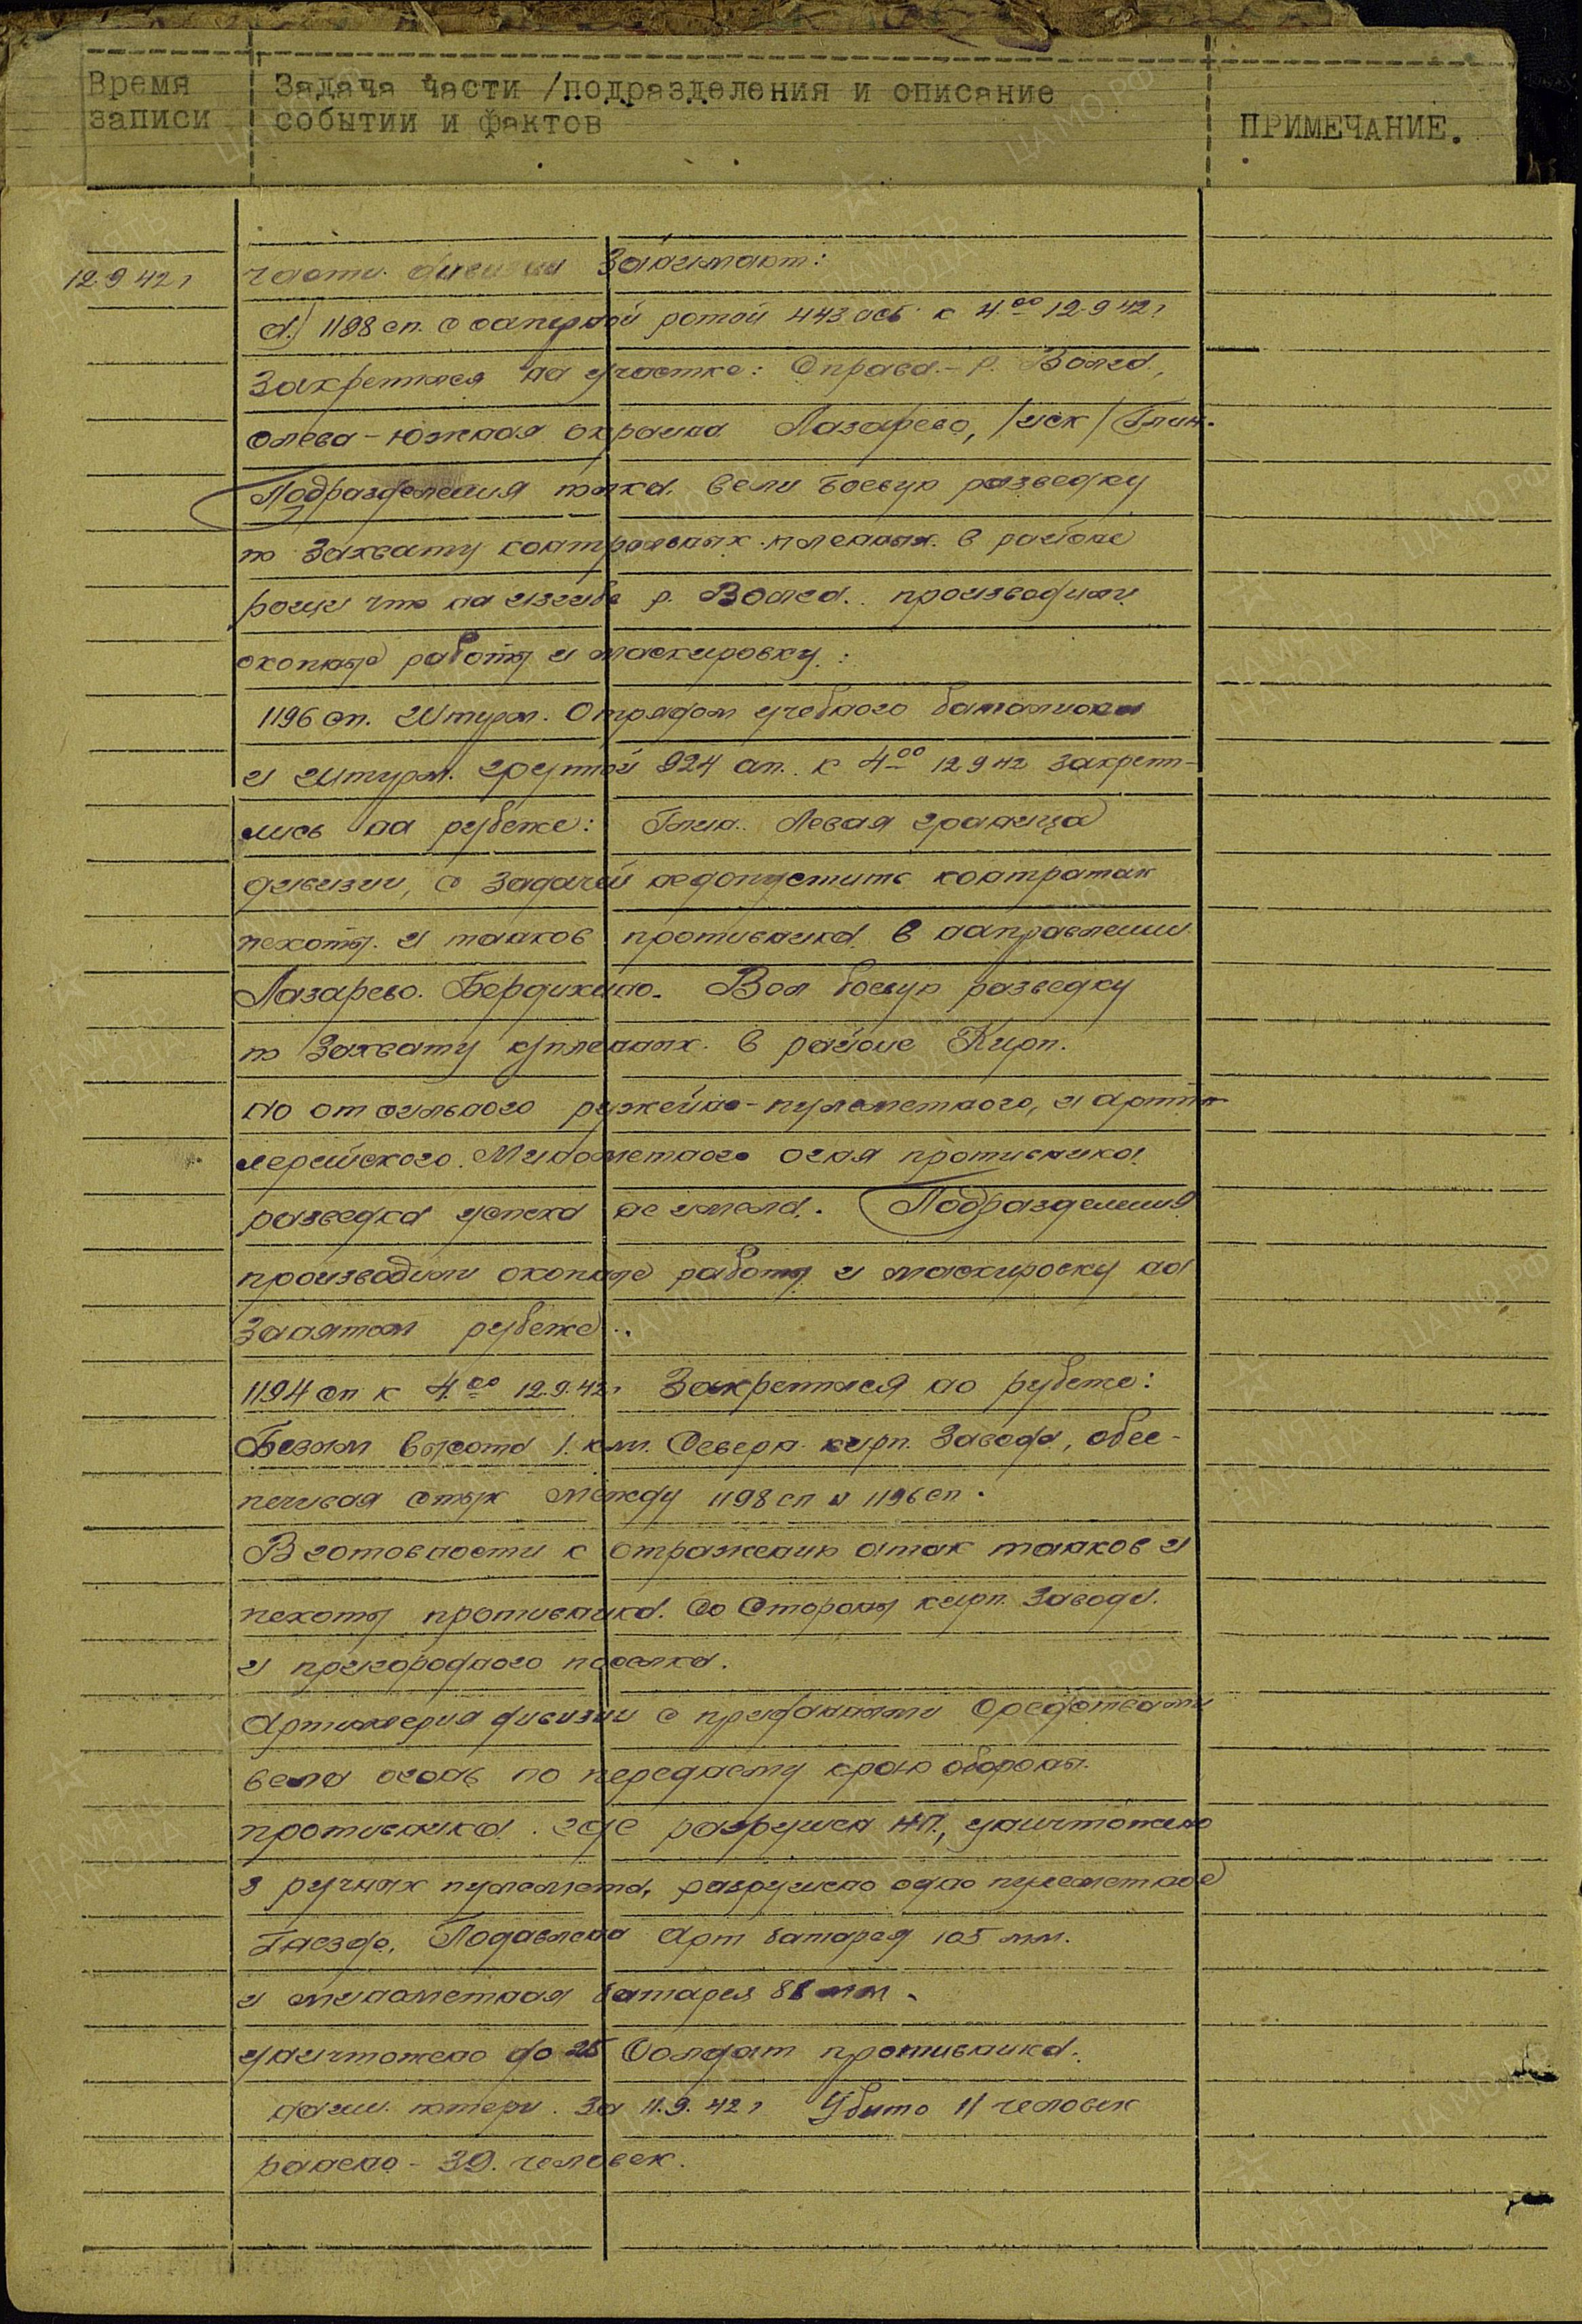 Время записи
Задача части /подразделения и описание
событии и фактов
ПРИМЕЧАНИЕ.
12.9 42 г
части дивизии Занимают:
а.) 1198 сп. с саперной ротой 443 осб. к 4.00 12.9 42 г
Закрепился на участке: Справа - р. Волга,
слева - южная окраина Лазарево, /иск/ Глин.
Подразделения полка вели боевую разведку
по Захвату контрольных пленных в районе
рощи что на изгибе р. Волга. производили
окопные работы и маскировку.
1196 сп. Штурм. Отрядом учебного батальона
и штурм. группой 924 ап. к 4.00 12 9 42 закрепи-
лись на рубеже: Глин. Левая граница
дивизии, с Задачей недопустить контратак
пехоты и танков противника в направлении
Лазарево. Бердихино. Вел боевую разведку
по Захвату к/пленных в районе Кирп.
но от сильного ружейно-пулеметного, и артил-
лерийского. Минометного огня противника
разведка успеха не имела. Подразделения
производили окопные работы и маскировку на
Занятом рубеже.
1194 сп к 4.00 12.9.42 г Закрепился на рубеже:
Безым высота 1. км. Северн. кирп. Завода, обес-
печивая стык между 1198 сп и 1196 сп.
В готовности к отражению атак танков и
пехоты противника. Со Стороны кирп. Завода.
и пригородного поселка.
Артиллерия дивизии с приданными Средствами
вела огонь по переднему краю обороны
противника. где разрушен НП, уничтожено
3 ручных пулемета, разрушено одно пулеметное
Гнездо, Подавлена Арт батарея 105 мм.
и минометная батарея 81 мм.
уничтожено до 25 Солдат противника.
наши потери. За 11.9.42 г Убито 11 человек
ранено - 39. человек.